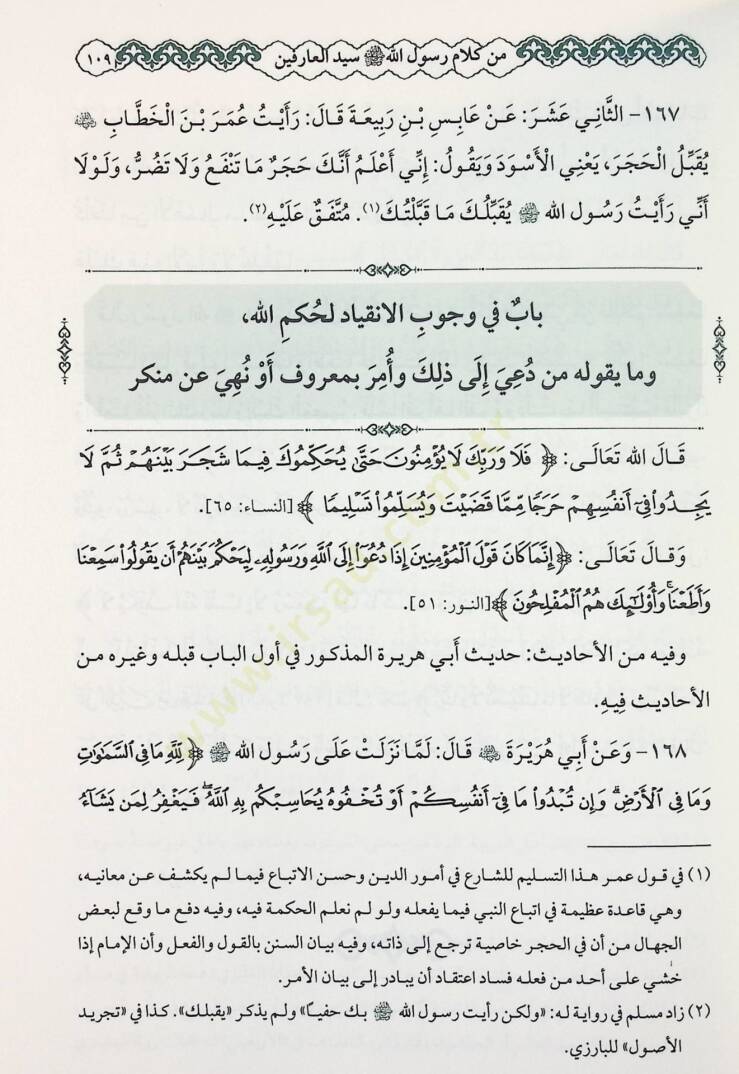 من كلام رسول الله ﷺ سيد العارفين
١٠٩
١٦٧- الثَّانِي عَشَرَ: عَنْ عَابِسِ بْنِ رَبِيعَةَ قَالَ: رَأَيْتُ عُمَرَ بْنَ الْخَطَّابِ ﵁
يُقَبِّلُ الْحَجَرَ، يَعْنِي الْأَسْوَدَ وَيَقُولُ: إِنِّي أَعْلَمُ أَنَّكَ حَجَرٌ مَا تَنْفَعُ وَلَا تَضُرُّ، وَلَوْلَا
أَنِّي رَأَيْتُ رَسُولَ الله ﷺ يُقَبِّلُكَ مَا قَبَّلْتُكَ(١). مُتَّفَقٌ عَلَيْهِ(٢).
بابٌ في وجوبِ الانقياد لحُكمِ الله،
وما يقوله من دُعِيَ إِلَى ذلِكَ وأُمِرَ بمعروف أَوْ نُهِيَ عن منكر
قَالَ الله تَعَالَى: ﴿ فَلَا وَرَبِّكَ لَا يُؤْمِنُونَ حَتَّىٰ يُحَكِّمُوكَ فِيمَا شَجَرَ بَيْنَهُمْ ثُمَّ لَا
يَجِدُوا۟ فِىٓ أَنفُسِهِمْ حَرَجًا مِّمَّا قَضَيْتَ وَيُسَلِّمُوا۟ تَسْلِيمًا ﴾ [النساء: ٦٥].
وَقَالَ تَعَالَى: ﴿إِنَّمَا كَانَ قَوْلَ الْمُؤْمِنِينَ إِذَا دُعُوٓا۟ إِلَى اللَّهِ وَرَسُولِهِۦ لِيَحْكُمَ بَيْنَهُمْ أَن يَقُولُوا۟ سَمِعْنَا
وَأَطَعْنَا ۚ وَأُو۟لَٰٓئِكَ هُمُ الْمُفْلِحُونَ ﴾[النور: ٥١].
وفيه من الأحاديث: حديث أَبي هريرة المذكور في أول الباب قبله وغيره من
الأحاديث فِيهِ.
١٦٨- وَعَنْ أَبِي هُرَيْرَةَ ﵁ قَالَ: لَمَّا نَزَلَتْ عَلَى رَسُولِ الله ﷺ ﴿ لِلَّهِ مَا فِى السَّمَٰوَٰتِ
وَمَا فِى الْأَرْضِ ۗ وَإِن تُبْدُوا۟ مَا فِىٓ أَنفُسِكُمْ أَوْ تُخْفُوهُ يُحَاسِبْكُم بِهِ اللَّهُ ۖ فَيَغْفِرُ لِمَن يَشَآءُ
(١) في قول عمر هذا التسليم للشارع في أمور الدين وحسن الاتباع فيما لم يكشف عن معانيه،
وهي قاعدة عظيمة في اتباع النبي فيما يفعله ولو لم نعلم الحكمة فيه، وفيه دفع ما وقع لبعض
الجهال من أن في الحجر خاصية ترجع إلى ذاته، وفيه بيان السنن بالقول والفعل وأن الإمام إذا
خشي على أحد من فعله فساد اعتقاد أن يبادر إلى بيان الأمر.
(٢) زاد مسلم في رواية له: «ولكن رأيت رسول الله ﷺ بك حفياً» ولم يذكر «يقبلك». كذا في «تجريد
الأصول» للبارزي.
www.irsad.com.tr